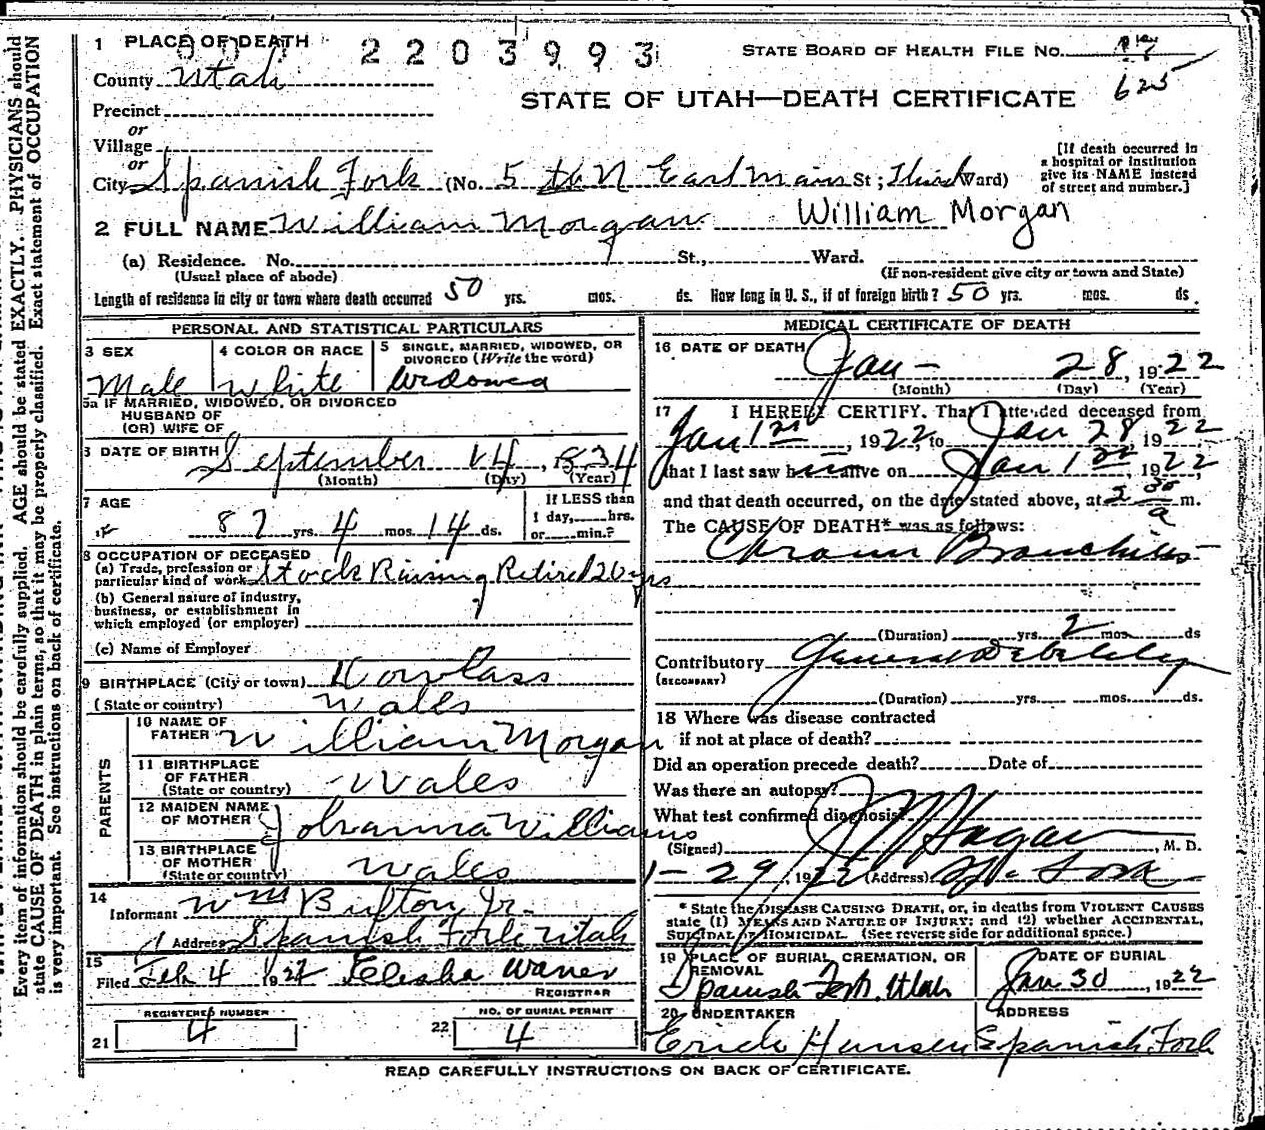 1 PLACE OF DEATH
2203993
STATE BOARD OF HEALTH FILE NO.
625
County Utah
STATE OF UTAH—DEATH CERTIFICATE
Precinct
or
Village
or
City Spanish Fork (No. 5 th N East Main St; Third Ward)
[If death occurred in a hospital or institution give its NAME instead of street and number.]
2 FULL NAME William Morgan William Morgan
(a) Residence. No. St., Ward.
(Usual place of abode) (If non-resident give city or town and State)
Length of residence in city or town where death occurred 50 yrs. mos. ds. How long in U. S., if of foreign birth? 50 yrs. mos. ds.
PERSONAL AND STATISTICAL PARTICULARS
3 SEX
Male
4 COLOR OR RACE
White
5 SINGLE, MARRIED, WIDOWED, OR DIVORCED (Write the word)
Widowed
5a IF MARRIED, WIDOWED, OR DIVORCED
HUSBAND OF
(OR) WIFE OF
6 DATE OF BIRTH September 14, 1834
(Month) (Day) (Year)
7 AGE
87 yrs. 4 mos. 14 ds.
If LESS than
1 day, hrs.
or min.?
8 OCCUPATION OF DECEASED
(a) Trade, profession or
particular kind of work Stock Raising Retired 20 yrs
(b) General nature of industry,
business, or establishment in
which employed (or employer)
(c) Name of Employer
9 BIRTHPLACE (City or town)
(State or country) Wales
PARENTS
10 NAME OF
FATHER William Morgan
11 BIRTHPLACE
OF FATHER
(State or country) Wales
12 MAIDEN NAME
OF MOTHER Johanna Williams
13 BIRTHPLACE
OF MOTHER
(State or country) Wales
14
Informant Wm Bufton Jr.
Address Spanish Fork Utah
15
Filed Feb 4 1922 Elisha Warner
REGISTRAR
21 REGISTERED NUMBER
4
22 NO. OF BURIAL PERMIT
4
MEDICAL CERTIFICATE OF DEATH
16 DATE OF DEATH
Jan - 28, 1922
(Month) (Day) (Year)
17 I HEREBY CERTIFY, That I attended deceased from
Jan 1st, 1922, to Jan 28, 1922
that I last saw him alive on Jan 1st, 1922,
and that death occurred, on the date stated above, at 2 30 a m.
The CAUSE OF DEATH* was as follows:
Chronic Bronchitis
(Duration) yrs. 2 mos. ds
Contributory General Debility
(SECONDARY)
(Duration) yrs. mos. ds.
18 Where was disease contracted
if not at place of death?
Did an operation precede death? Date of
Was there an autopsy?
What test confirmed diagnosis?
(Signed) J W Hagan, M. D.
1-29, 1922 (Address) Sp. Fork
* State the DISEASE CAUSING DEATH, or, in deaths from VIOLENT CAUSES
state (1) MEANS AND NATURE OF INJURY; and (2) whether ACCIDENTAL,
SUICIDAL or HOMICIDAL. (See reverse side for additional space.)
19 PLACE OF BURIAL, CREMATION, OR
REMOVAL
Spanish Fork, Utah
DATE OF BURIAL
Jan 30, 1922
20 UNDERTAKER
Erick Hansen
ADDRESS
Spanish Fork
READ CAREFULLY INSTRUCTIONS ON BACK OF CERTIFICATE.
Every item of information should be carefully supplied. AGE should be stated EXACTLY. PHYSICIANS should
state CAUSE OF DEATH in plain terms, so that it may be properly classified. Exact statement of OCCUPATION
is very important. See instructions on back of certificate.